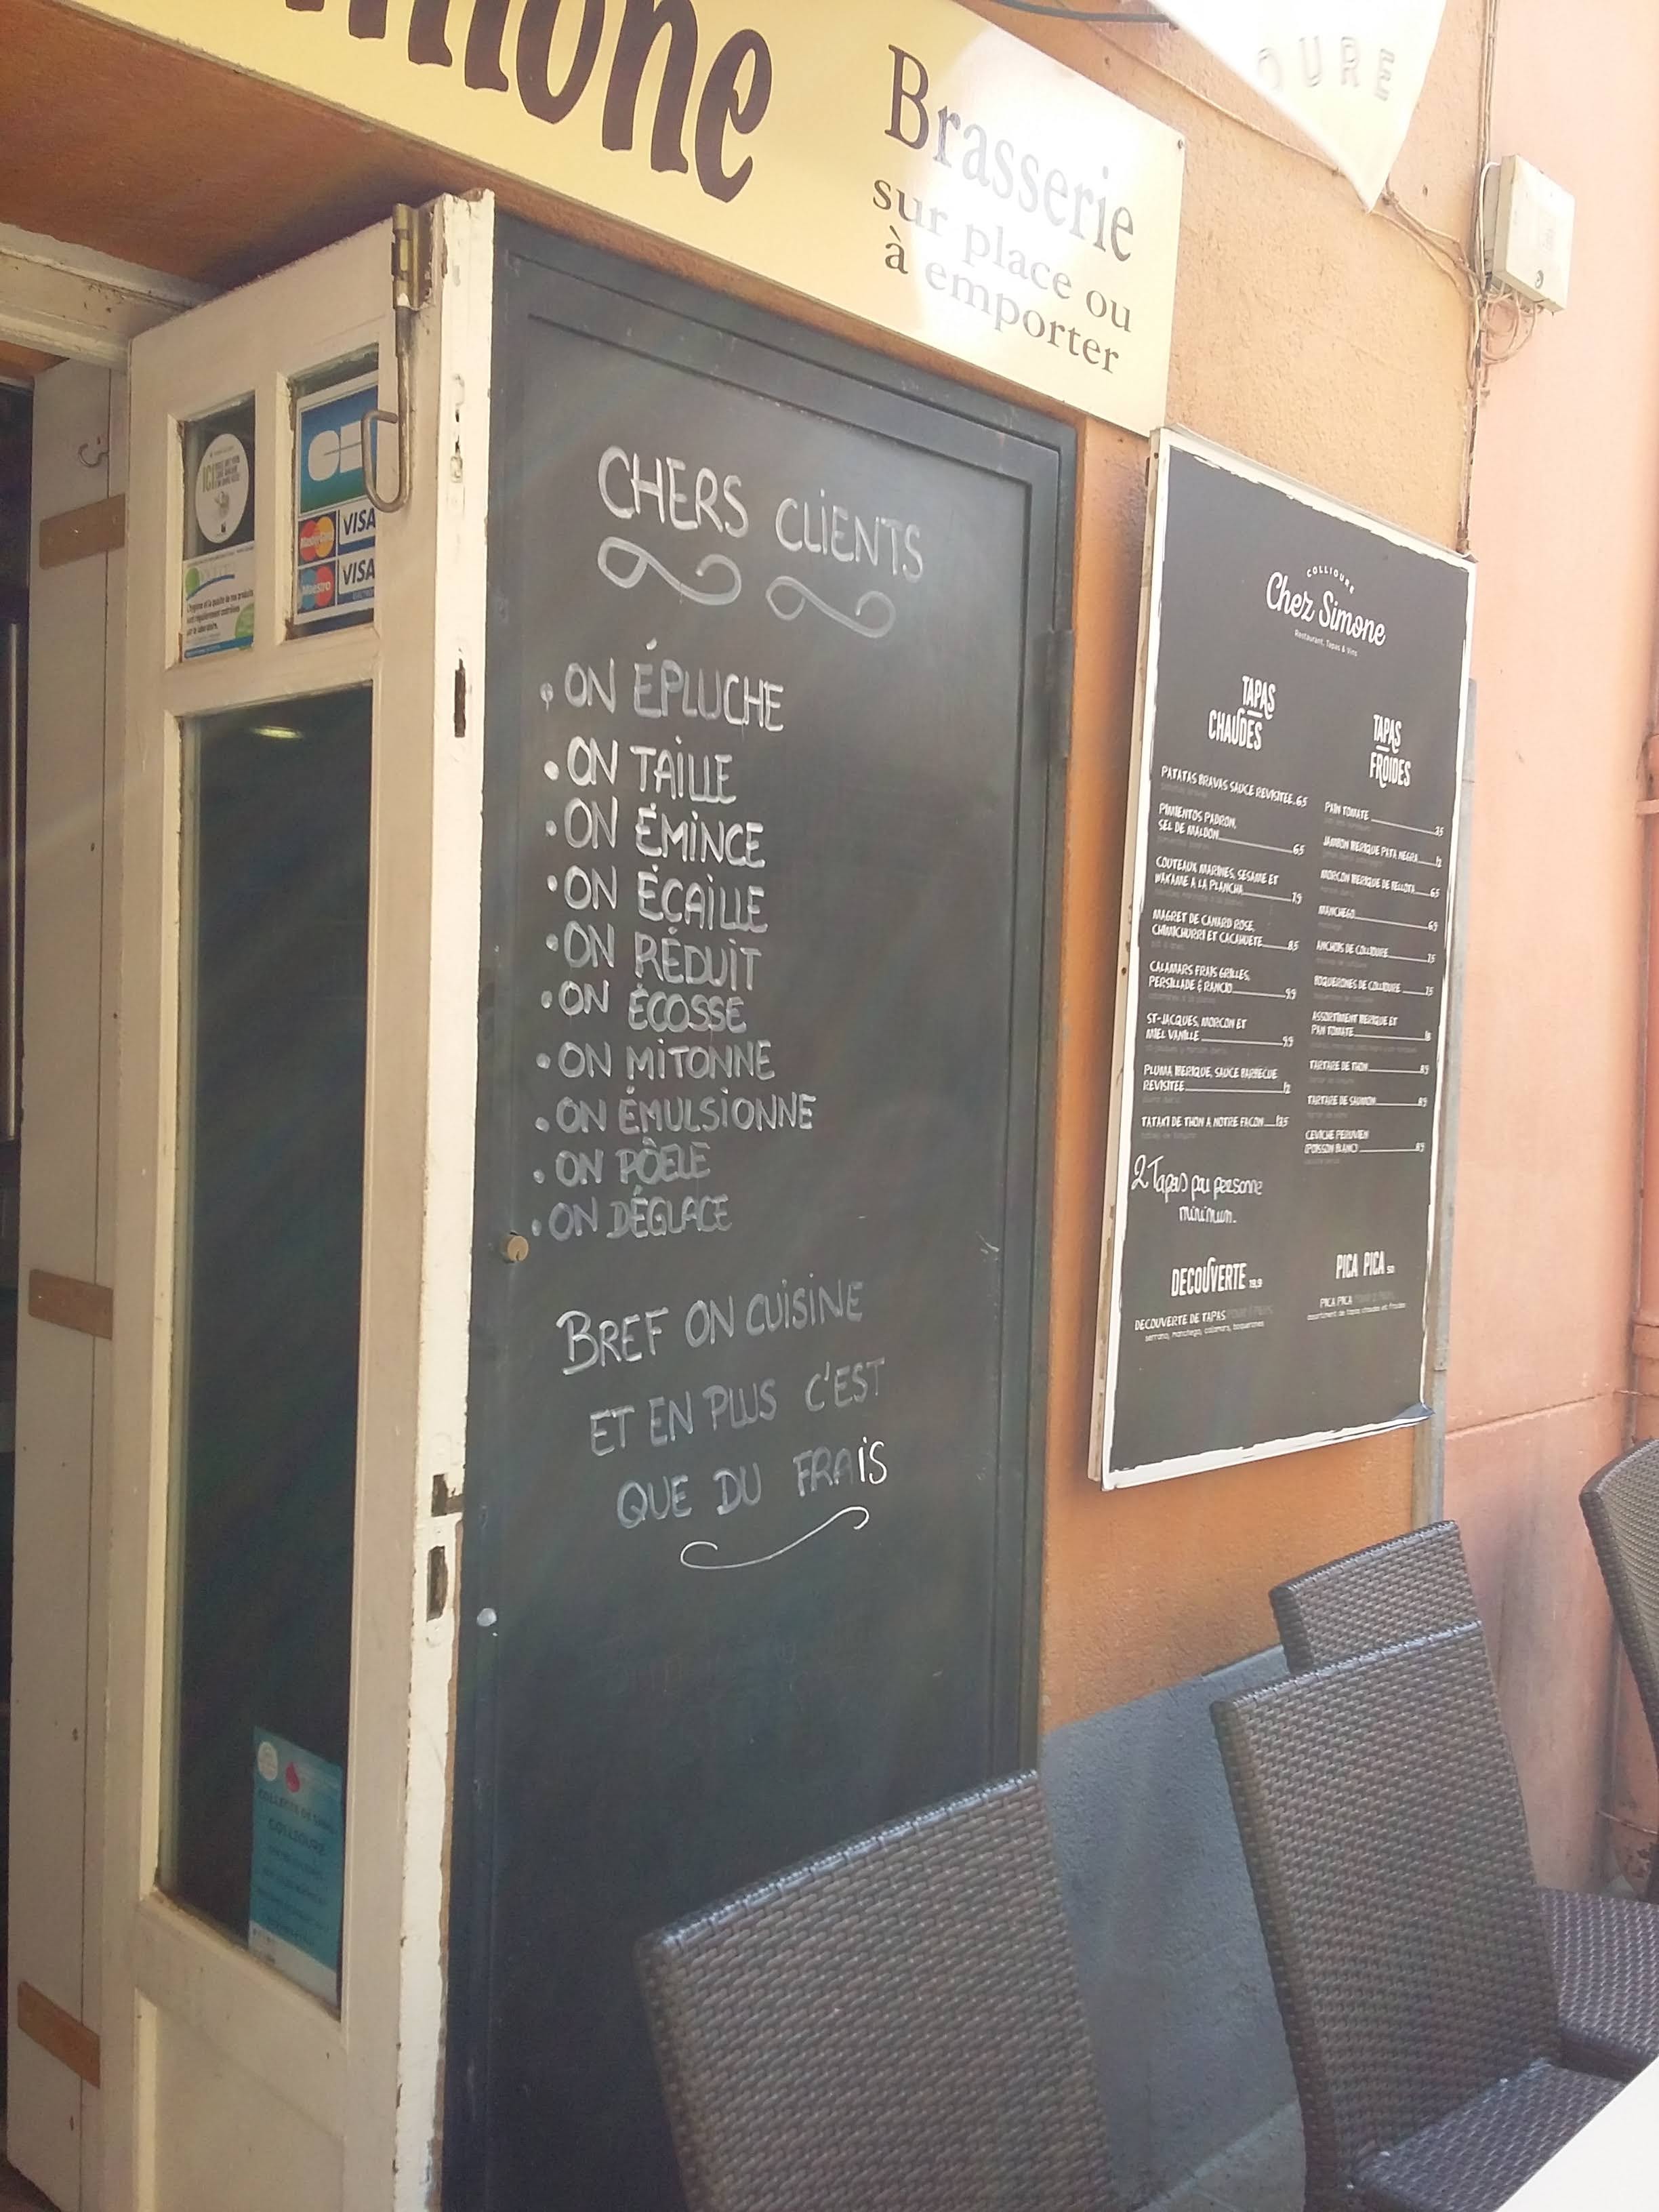 mone
Brasserie
sur place ou
à emporter
OURE
CB
MasterCard
VISA
Maestro
VISA
ICI
CHERS CLIENTS
• ON ÉPLUCHE
• ON TAILLE
• ON ÉMINCE
• ON ÉÇAILLE
• ON RÉDUIT
• ON ÉCOSSE
• ON MITONNE
• ON ÉMULSIONNE
• ON PÔELE
• ON DÉGLACE
BREF ON CUISINE
ET EN PLUS C'EST
QUE DU FRAIS
COLLIOURE
Chez Simone
Restaurant, Tapas & Vins
TAPAS
CHAUDES
PATATAS BRAVAS SAUCE REVISITEE 6.5
PIMIENTOS PADRON,
SEL DE MALDON 6.5
COUTEAUX MARINES, SESAME ET
WAKAME A LA PLANCHA 7.9
MAGRET DE CANARD ROSE,
CHIMICHURRI ET CACAHUETE 8.5
CALAMARS FRAIS GRILLES,
PERSILLADE & RANCIO 9.9
ST-JACQUES, MORCON ET
MIEL VANILLE 9.9
PLUMA IBERIQUE, SAUCE BARBECUE
REVISITEE 12
TATAKI DE THON A NOTRE FAÇON
2 Tapas par personne
minimum.
DECOUVERTE 19,9
DECOUVERTE DE TAPAS
serrano, manchego, calamars, boquerones
TAPAS
FROIDES
PAN TOMATE
JAMBON IBERIQUE PATA NEGRA
MORCON IBERIQUE DE BELLOTA 6.5
MANCHEGO 6.9
ANCHOIS DE COLLIOURE 7.5
BOQUERONES DE COLLIOURE 7.5
ASSORTIMENT IBERIQUE ET
PAN TOMATE
TARTARE DE THON 8.9
TARTARE DE SAUMON 8.9
CEVICHE PERUVIEN
(POISSON BLANC) 8.9
PICA PICA 50
PICA PICA
assortiment de tapas chaudes et froides
COLLECTE DE SANG
COLLIOURE